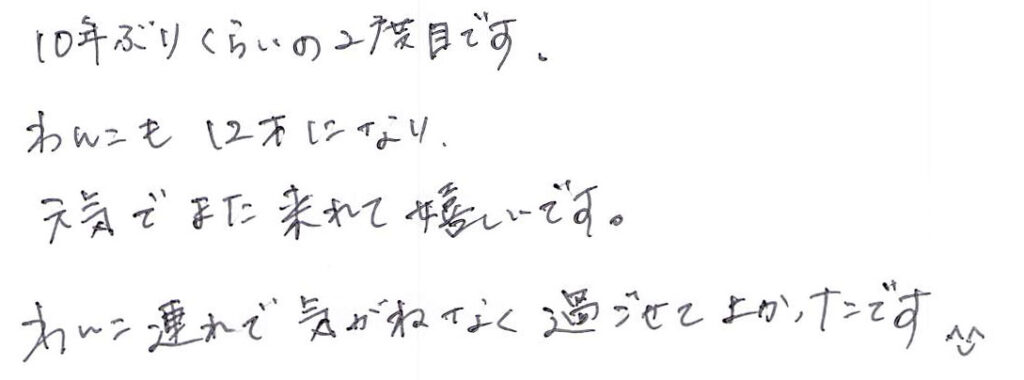 10年ぶりくらいの2度目です.
わんこも 12才になり.
元気で また 来れて 嬉しいです。
わんこ連れで 気がねなく 過ごせて よかったです ^^